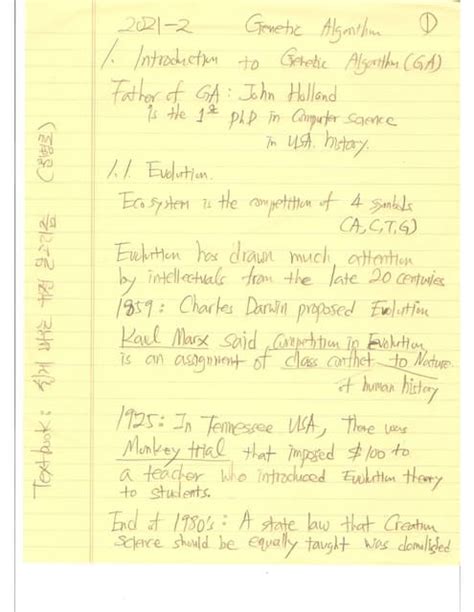 2021-2 Genetic Algorithm ①
1. Introduction to Genetic Algorithm (GA)
Father of GA : John Holland
is the 1st phD in Computer science
in USA. history.
1.1 Evolution.
Ecosystem is the competition of 4 symbols
(A,C,T,G)
Evolution has drawn much attention
by intellectuals from the late 20 centuries
1859 : Charles Darwin proposed Evolution
Karl Marx said, Competition in Evolution
is an assignment of class conflict to Nature.
of human history
1925 : In Tennessee USA, There was
Monkey trial that imposed $100 to
a teacher who introduced Evolution theory
to students.
End of 1980's : A state law that Creation
Science should be equally taught was demolished
Textbook : 쉽게 배우는 유전 알고리즘 (문병로)